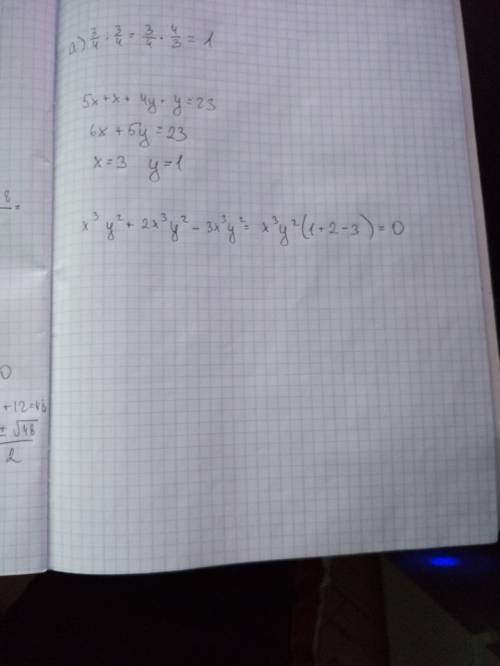 a) 3/4 : 3/4 = 3/4 · 4/3 = 1
5x+x+ 4y+y=23
6x+5y=23
x=3 y=1
8
=
x³y²+2x³y²-3x³y²= x³y²(1+2-3)=0
0
+12=48
± √48
2